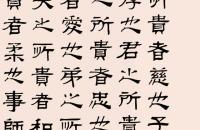 所貴者慈也子
者孝也君之所
之所貴者忠也
者愛也弟之所
夫之所貴者和
貴者柔也事師